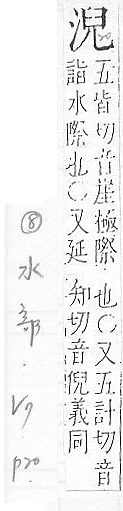 淣
五皆切音崖極際也〇又五計切音
詣水際也〇又延知切音倪義同
⑧水部.V9 p20